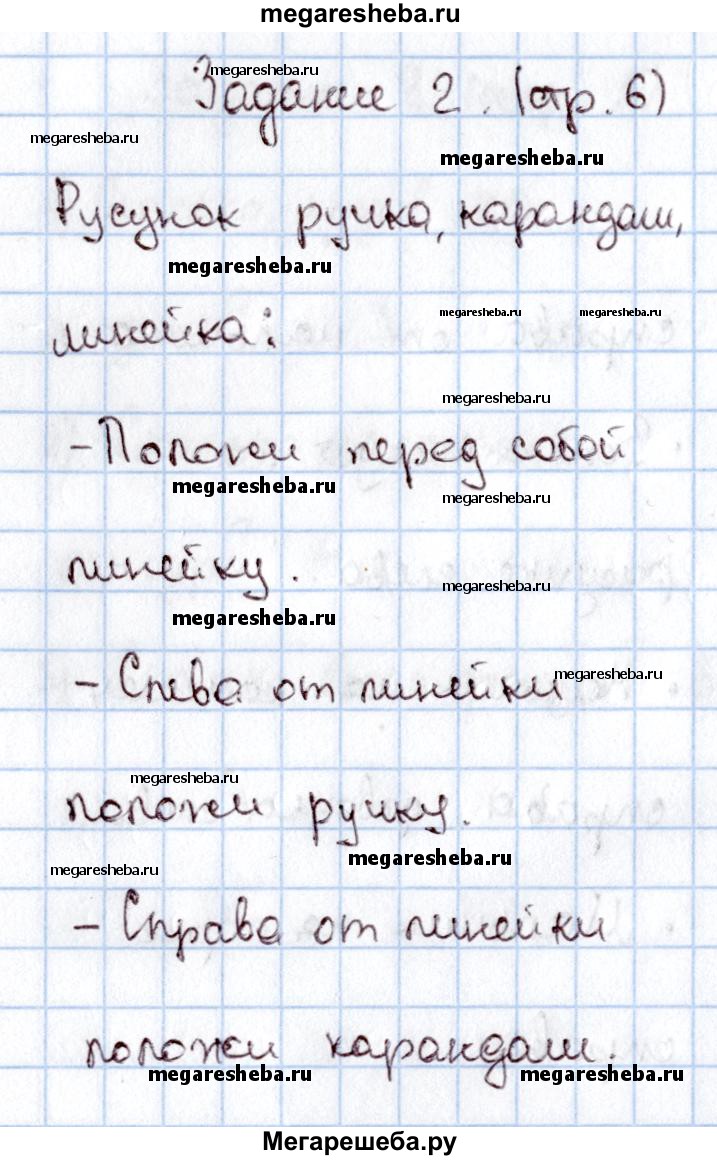 megaresheba.ru
megaresheba.ru
Задание 2. (стр. 6)
megaresheba.ru
megaresheba.ru
Русунок ручка, карандаш,
megaresheba.ru
megaresheba.ru megaresheba.ru
линейка:
megaresheba.ru
-Положи перед собой
megaresheba.ru
megaresheba.ru
линейку.
megaresheba.ru
megaresheba.ru
-Слева от линейки
megaresheba.ru
megaresheba.ru
положи ручку.
megaresheba.ru
megaresheba.ru
-Справа от линейки
положи карандаш.
megaresheba.ru megaresheba.ru
Мегарешеба.ру